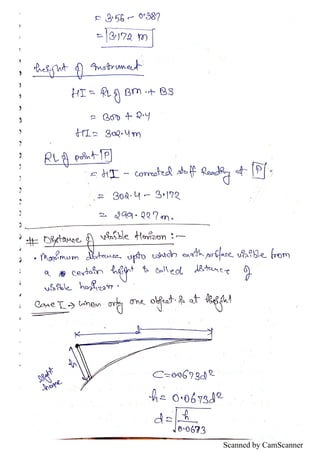 = 3.56 - 0.387
= 3.172 m
height of Instrument
HI = RL of BM + BS
= 300 + 2.4
HI = 302.4m
RL of point P
= HI - corrected staff Reading at P.
= 302.4 - 3.172
= 299.227m.
# Distance of visible Horizon :-
• Maximum distance upto which earth surface visible from
a certain height is called distance of
visible horizon.
Case I → When only one object is at height
d
h
light
house
C = 0.0673d²
h = 0.0673d²
d = √h/0.0673
Scanned by CamScanner